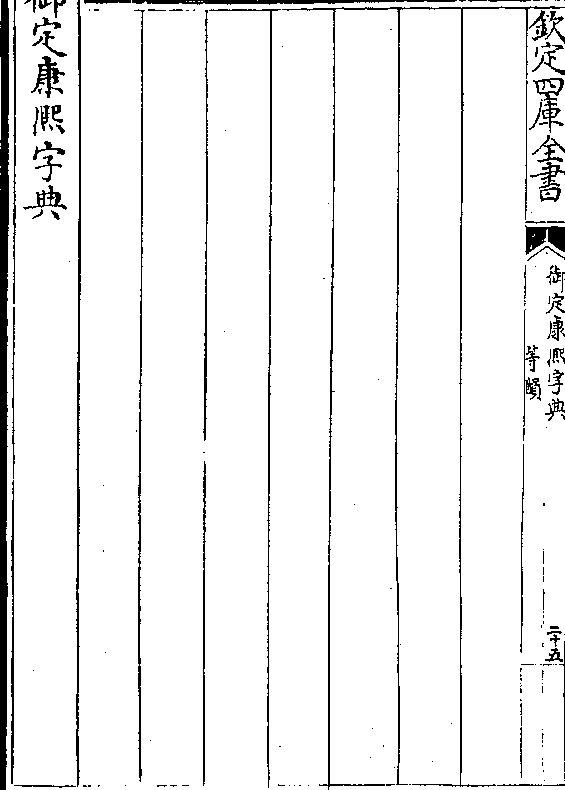 欽定四庫全書
御定康熙字典
等韻
二十五
御定康熙字典